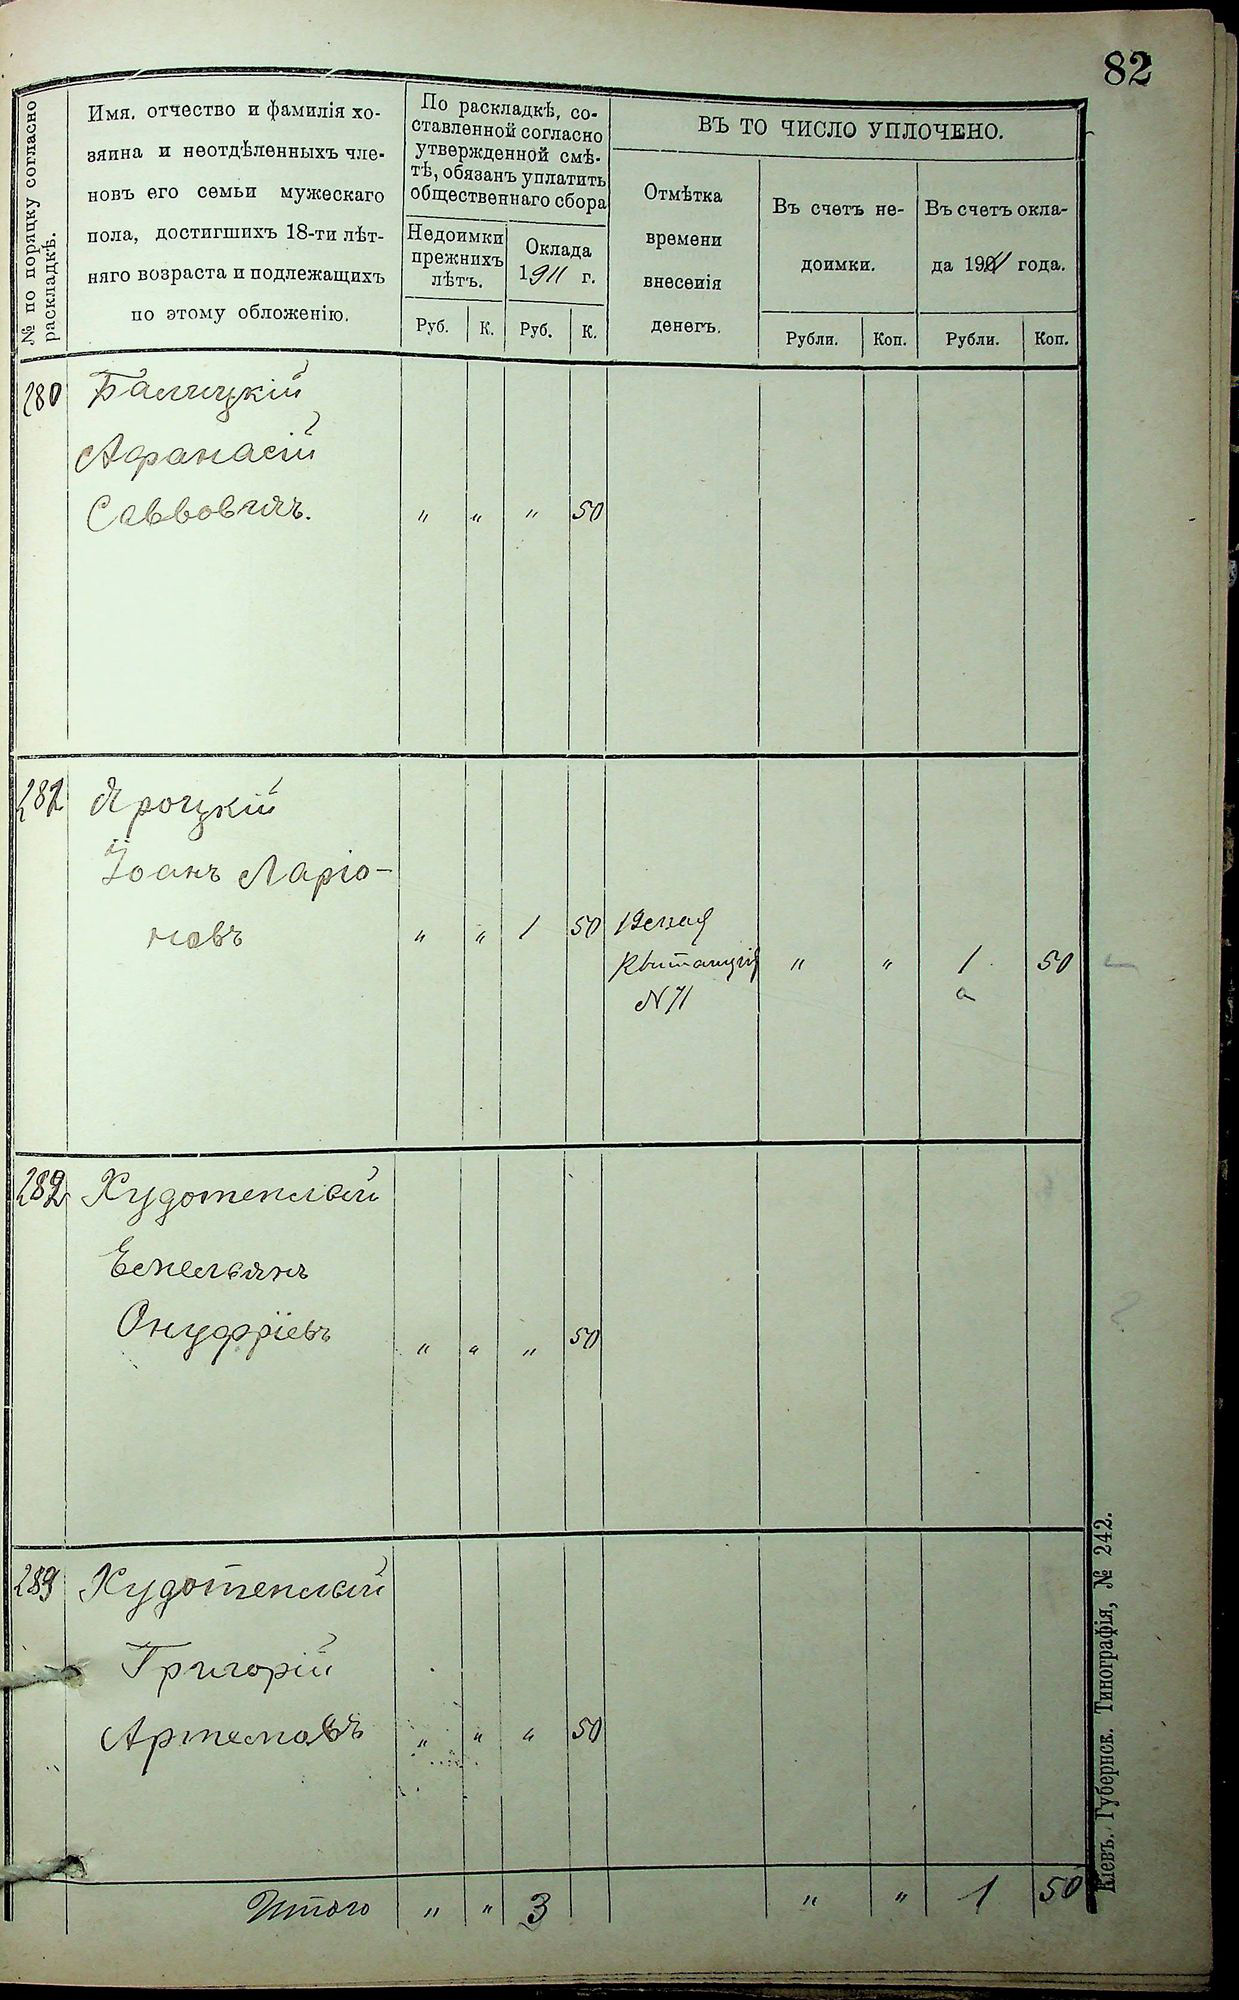 82
№ по поряцку согласно
раскладкѣ.
Имя, отчество и фамилія хо-
зяина и неотдѣленныхъ чле-
новъ его семьи мужескаго
пола, достигшихъ 18-ти лѣт-
няго возраста и подлежащихъ
по этому обложенію.
По раскладкѣ, со-
ставленной согласно
утвержденной смѣ-
тѣ, обязанъ уплатить
общественнаго сбора
Недоимки
прежнихъ
лѣтъ.
Оклада
1911 г.
Руб. К. Руб. К.
ВЪ ТО ЧИСЛО УПЛОЧЕНО.
Отмѣтка
времени
внесенія
денегъ.
Въ счетъ не-
доимки.
Въ счетъ окла-
да 1911 года.
Рубли. Коп. Рубли. Коп.
280 Балицкій
Афанасій
Саввовичъ. " " " 50
281 Яроцкій
Іоанъ Ларіо-
новъ " " 1 50
Квитанція " " 1 50
N 71
282 Худотеплый
Емельянъ
Онуфріевъ " " " 50
283 Худотеплый
Григорій
Артемовъ " " " 50
Итого " " 3 " " 1 50
Кіевъ. Губернск. Типографія, № 242.